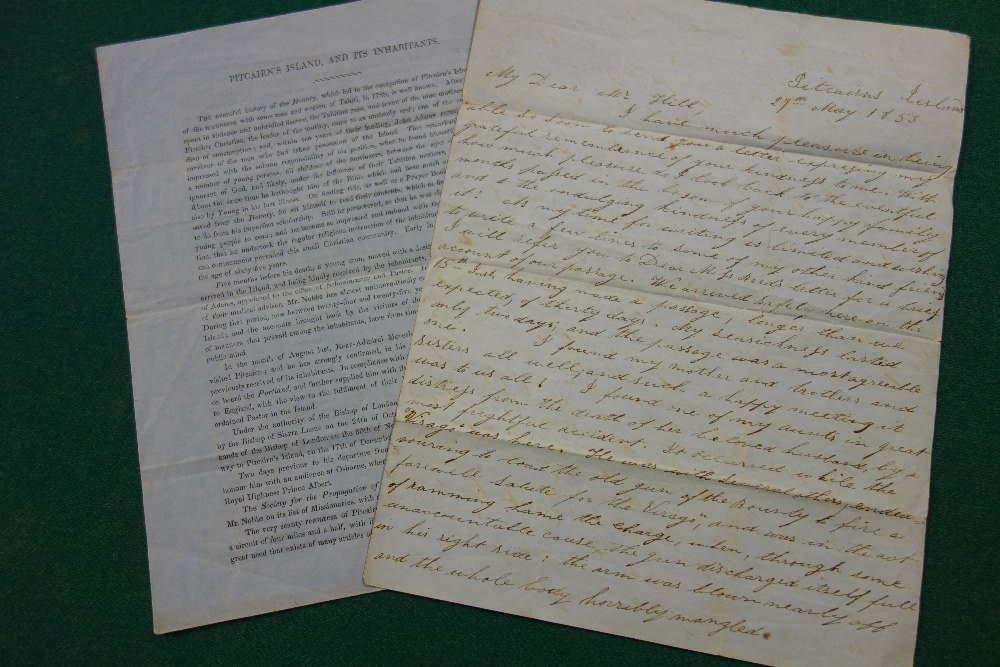 PITCAIRN'S ISLAND, AND ITS INHABITANTS.
The eventful history of the Bounty, which led to the occupation of Pitcairn's
of the mutineers with some men and women of Tahiti, in 1789, is well known.
spent in violence and unbridled
Fletcher Christian, the leader of the mutiny, came to an untimely end; one of the
died of consumption; and, within ten years of their landing, John Adams
survivor of the men who had taken possession of the Island. This
impressed with the solemn responsibility of his position, when he found himself
a number of young persons, all children of the mutineers, between the ages
ignorant of God, and likely, under the influence of their Tahitian mothers,
About the same time he bethought him of the Bible which had been much
use by Young in his last illness. On finding this, as well as a Prayer Book
saved from the Bounty, he set himself to read their contents, which at
to do from his imperfect scholarship. Still he persevered, so that he was
young people to read; and he became so impressed and indeed
that he undertook the regular religious instruction of the
and contentment pervaded this small Christian community. Early in
the age of sixty-five years.
Five months before his death, a young man, moved with a
arrived in the Island, and being kindly received by the inhabitants,
of Adams, appointed to the office of Schoolmaster and Pastor.
of their medical adviser, Mr. Nobbs has almost unremittingly
During that period, now between twenty-four and twenty-five
Island; and the accounts brought back by the visitors of the
of manners that prevail among the inhabitants, have from time
public mind.
In the month of August last, Rear-Admiral
visited Pitcairn; and he has strongly confirmed, in his
previously received of its inhabitants. In compliance with
on board the Portland, and further supplied him with the
to England, with the view to the fulfilment of their
ordained Pastor in the Island.
Under the authority of the Bishop of London
by the Bishop of Sierra Leone on the 24th of
hands of the Bishop of London on the 30th of
way to Pitcairn's Island, on the 17th of December
Two days previous to his departure from
honour him with an audience at Osborne, where
Royal Highness Prince Albert.
The Society for the Propagation of
Mr. Nobbs on its list of Missionaries, with
The very scanty resources of Pitcairn
a circuit of four miles and a half, with
great need that exists of many articles
Pitcairns Island
29th May 1853
My Dear Mr Hill,
I have much pleasure in being
able so soon to send you a letter expressing my
grateful remembrance of your kindness to me. With
how much pleasure do I look back to the eventful
months passed in the bosom of your happy family,
and to the indulging kindness of every member of
it! As my time for writing is limited and wishing
to write a few lines to some of my other kind friends
I will refer you to Dear Mr Nobbs's letter for a brief
account of our passage. We arrived safely here on the
15th Inst, having made a passage longer than we
expected, of thirty days. My seasickness lasted
only two days; and the passage was a most agreeable
one. I found my mother and brothers and
sisters all well, and such a happy meeting it
was to us all! I found one of my aunts in great
distress from the death of her beloved husband, by a
most frightful accident. It occurred while the
"Virago" was here. He was with several others, endea-
vouring to load the old gun of the Bounty to fire a
farewell salute for the "Virago," and was in the act
of ramming home the charge, when, through some
unaccountable cause, the gun discharged itself full
in his right side: the arm was blown nearly off
and the whole body horribly mangled.